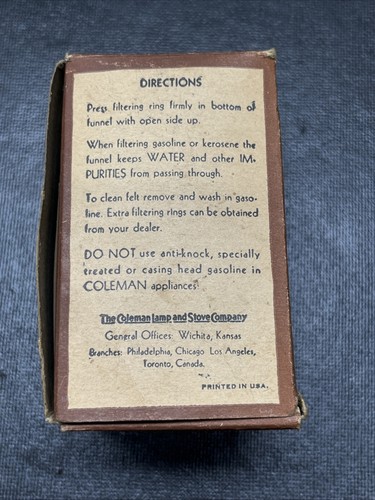 DIRECTIONS
Press filtering ring firmly in bottom of
funnel with open side up.
When filtering gasoline or kerosene the
funnel keeps WATER and other IM-
PURITIES from passing through.
To clean felt remove and wash in gaso-
line. Extra filtering rings can be obtained
from your dealer.
DO NOT use anti-knock, specially
treated or casing head gasoline in
COLEMAN appliances.
The Coleman Lamp and Stove Company
General Offices: Wichita, Kansas
Branches: Philadelphia, Chicago Los Angeles,
Toronto, Canada.
PRINTED IN U.S.A.